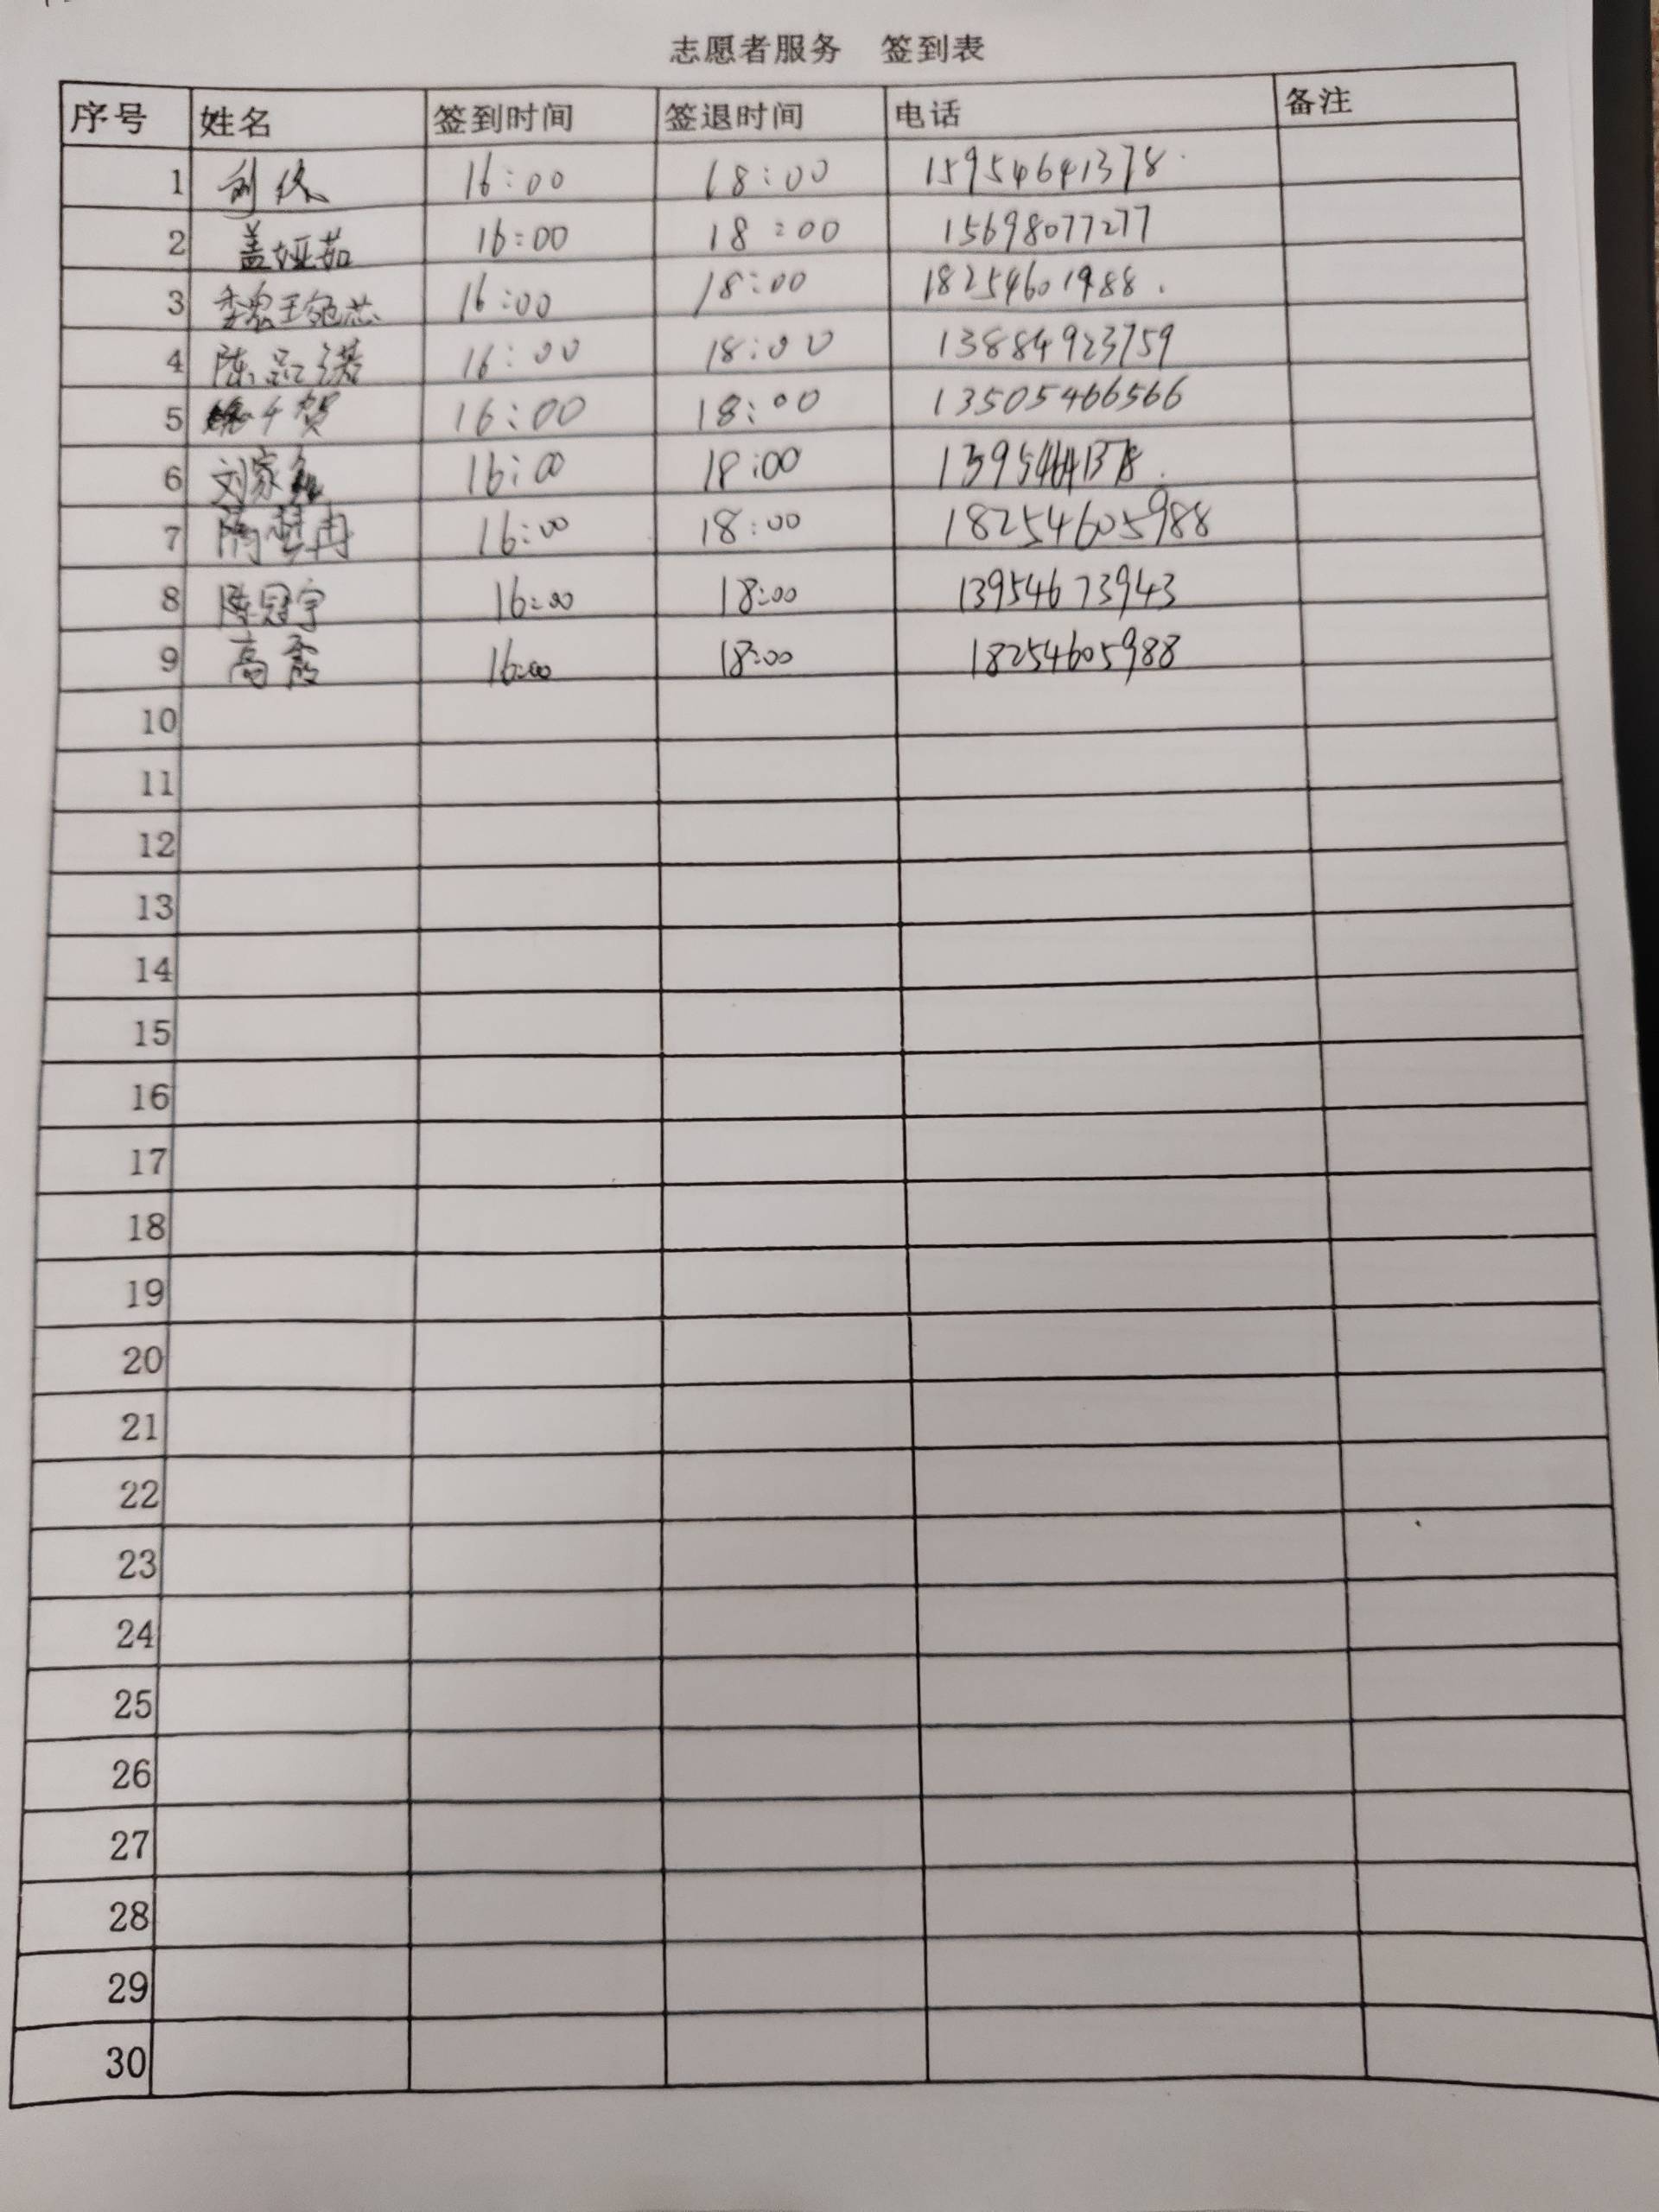 志愿者服务 签到表
序号 姓名 签到时间 签退时间 电话 备注
1 16:00 18:00 15954641378
2 盖娅茹 16:00 18:00 15698077277
3 16:00 18:00
4 陈品诺 16:00 18:00 13884923759
5 千贺 16:00 18:00 13505466566
6 刘家 16:00 18:00
7 隋 冉 16:00 18:00 18254605988
8 陈冠宇 16:00 18:00 13954673943
9 高霞 16:00 18:00 18254605988
10
11
12
13
14
15
16
17
18
19
20
21
22
23
24
25
26
27
28
29
30